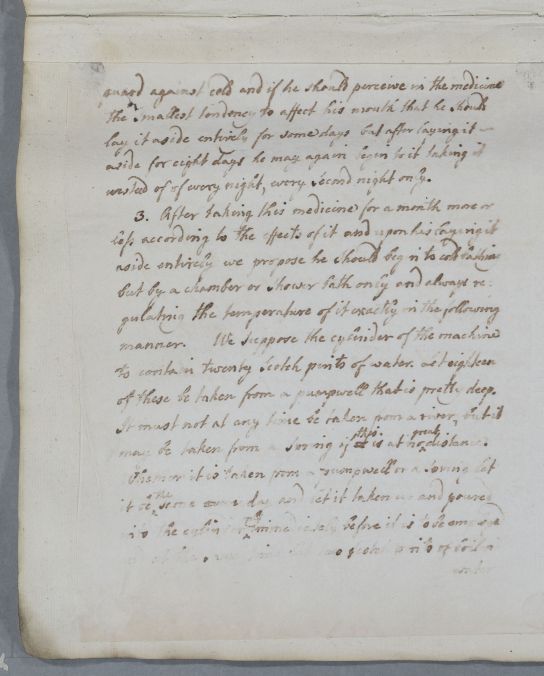 guard against cold and if he should perceive in the medicine
the smallest tendency to affect his mouth that he should
lay it aside entirely for some days but after laying it
aside for eight days he may again begin to it taking it
instead of of every night, every second night only.
3. After taking this medicine for a month more or
less according to the effects of it and upon his laying it
aside entirely we propose he should begin to cold bathing
but by a chamber or shower bath only and always re-
gulating the temperature of it exactly in the following
manner. We suppose the cylinder of the machine
to contain twenty Scotch pints of water. Let eighteen
of these be taken from a pumpwell that is pretty deep.
It must not at any time be taken from a river, but it
may be taken from a spring if this is at no great distance.
Whether it is taken from a pumpwell or a spring let
it be the same every day and let it taken up and poured
into the cylinder immediately before it is to be employed
two Scotch pints of boiling
water